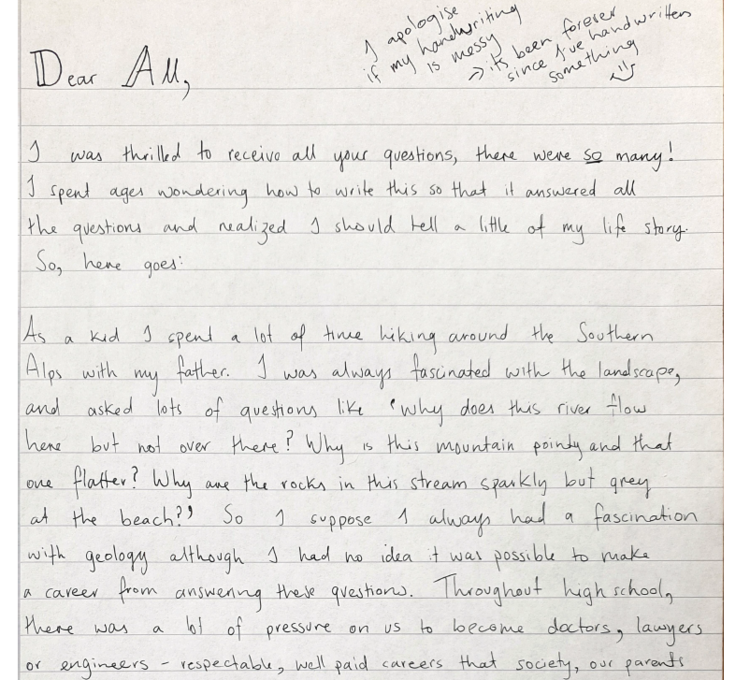 I apologise
if my handwriting
is messy
→ its been forever
since I've handwritten
something
Dear All,
I was thrilled to receive all your questions, there were so many!
I spent ages wondering how to write this so that it answered all
the questions and realized I should tell a little of my life story.
So, here goes:
As a kid I spent a lot of time hiking around the Southern
Alps with my father. I was always fascinated with the landscape,
and asked lots of questions like 'Why does this river flow
here but not over there? Why is this mountain pointy and that
one flatter? Why are the rocks in this stream sparkly but grey
at the beach?' So I suppose I always had a fascination
with geology although I had no idea it was possible to make
a career from answering these questions. Throughout high school,
there was a lot of pressure on us to become doctors, lawyers
or engineers - respectable, well paid careers that society, our parents